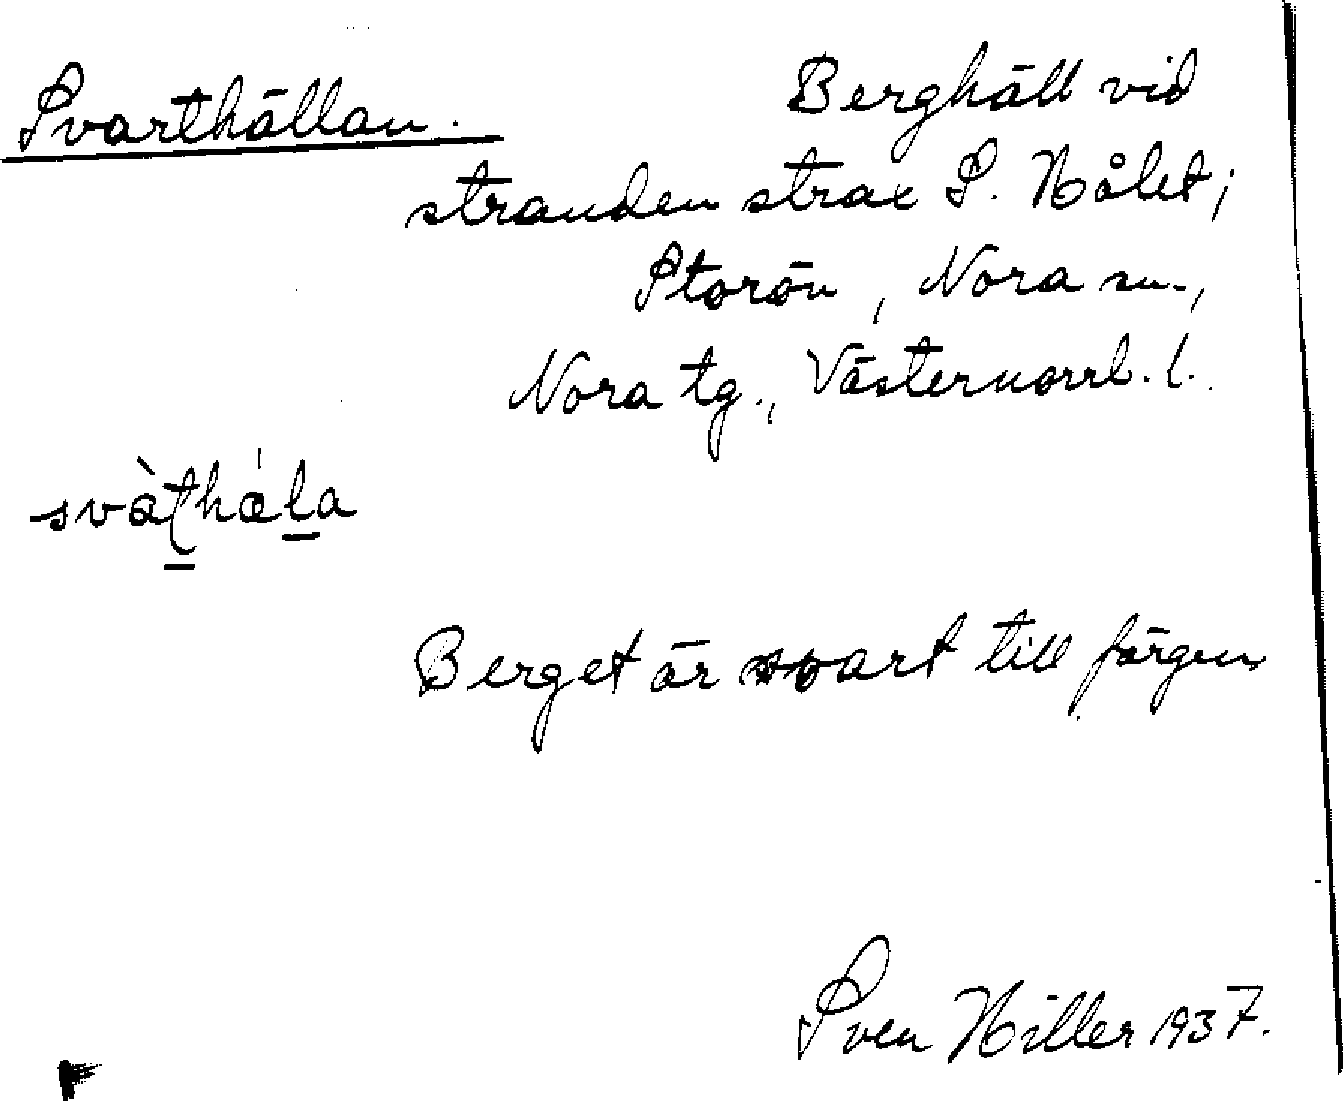 Svarthällan.
Berghäll vid
stranden strax S. Hålet;
Storön, Nora sn.,
Nora tg., Västernorrl. l.
svàt̠hǽl̠a
Berget är svart till färgen
Sven Hiller 1937.